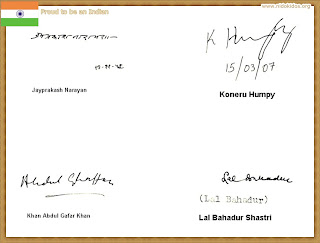 Proud to be an Indian
www.indiakidos.org
जयप्रकाश नारायण
K Humpy
15/03/07
Jayprakash Narayan
Koneru Humpy
Abdul Ghaffar
Lal Bahadur
(Lal Bahadur)
Khan Abdul Gafar Khan
Lal Bahadur Shastri